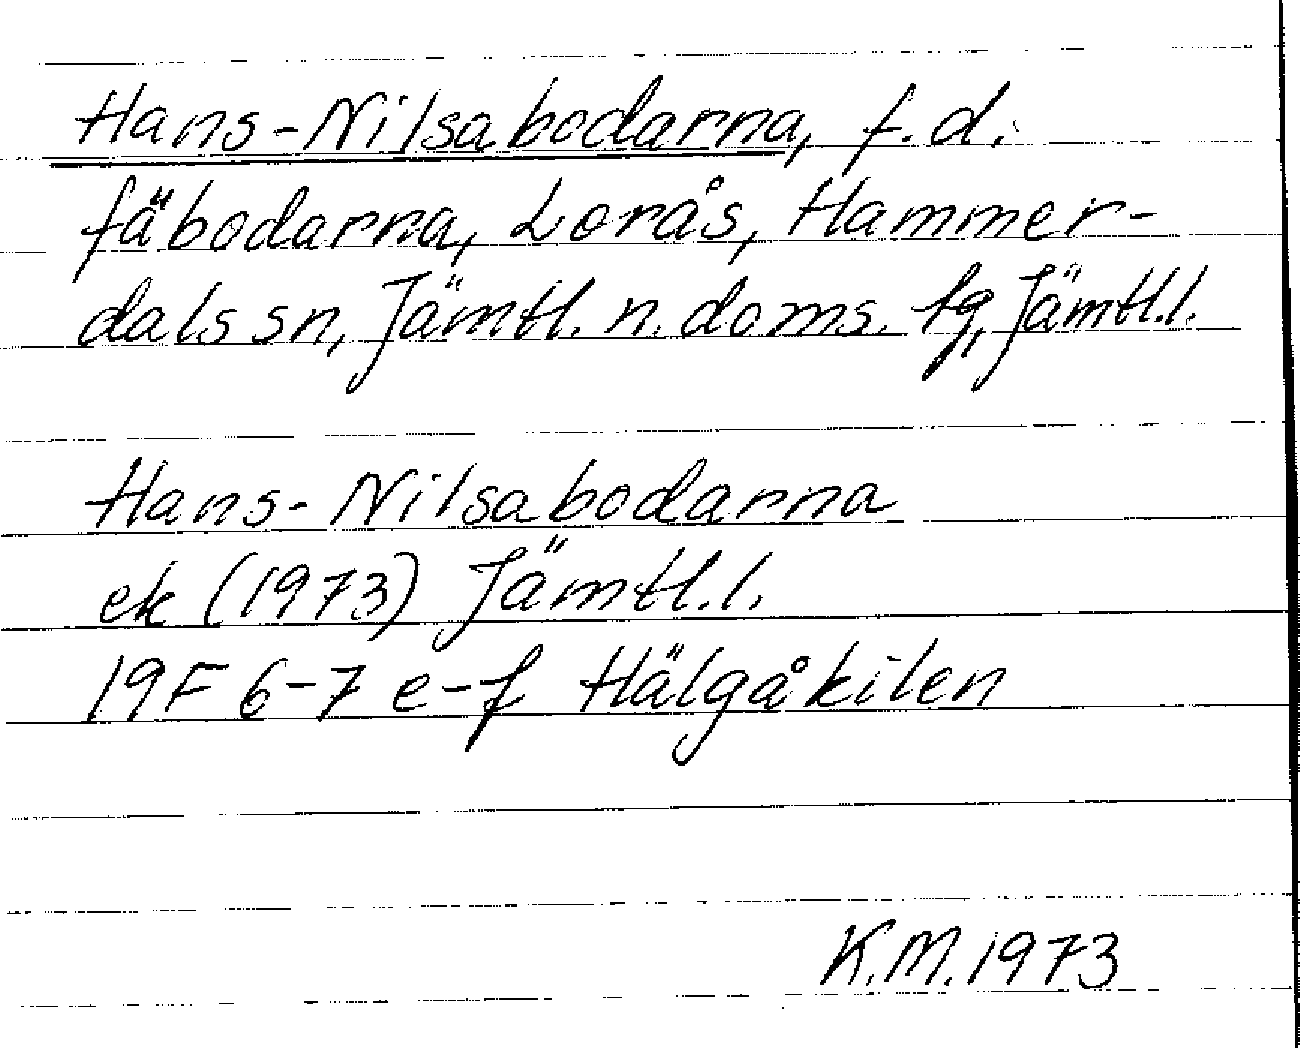 Hans-Nilsabodarna, f.d.
fäbodarna, Lorås, Hammer-
dals sn, Jämtl. n. doms. fg, Jämtl.l.
Hans-Nilsabodarna
ek (1973) Jämtl.l.
19F 6-7 e-f Hälgåkilen
K.M. 1973